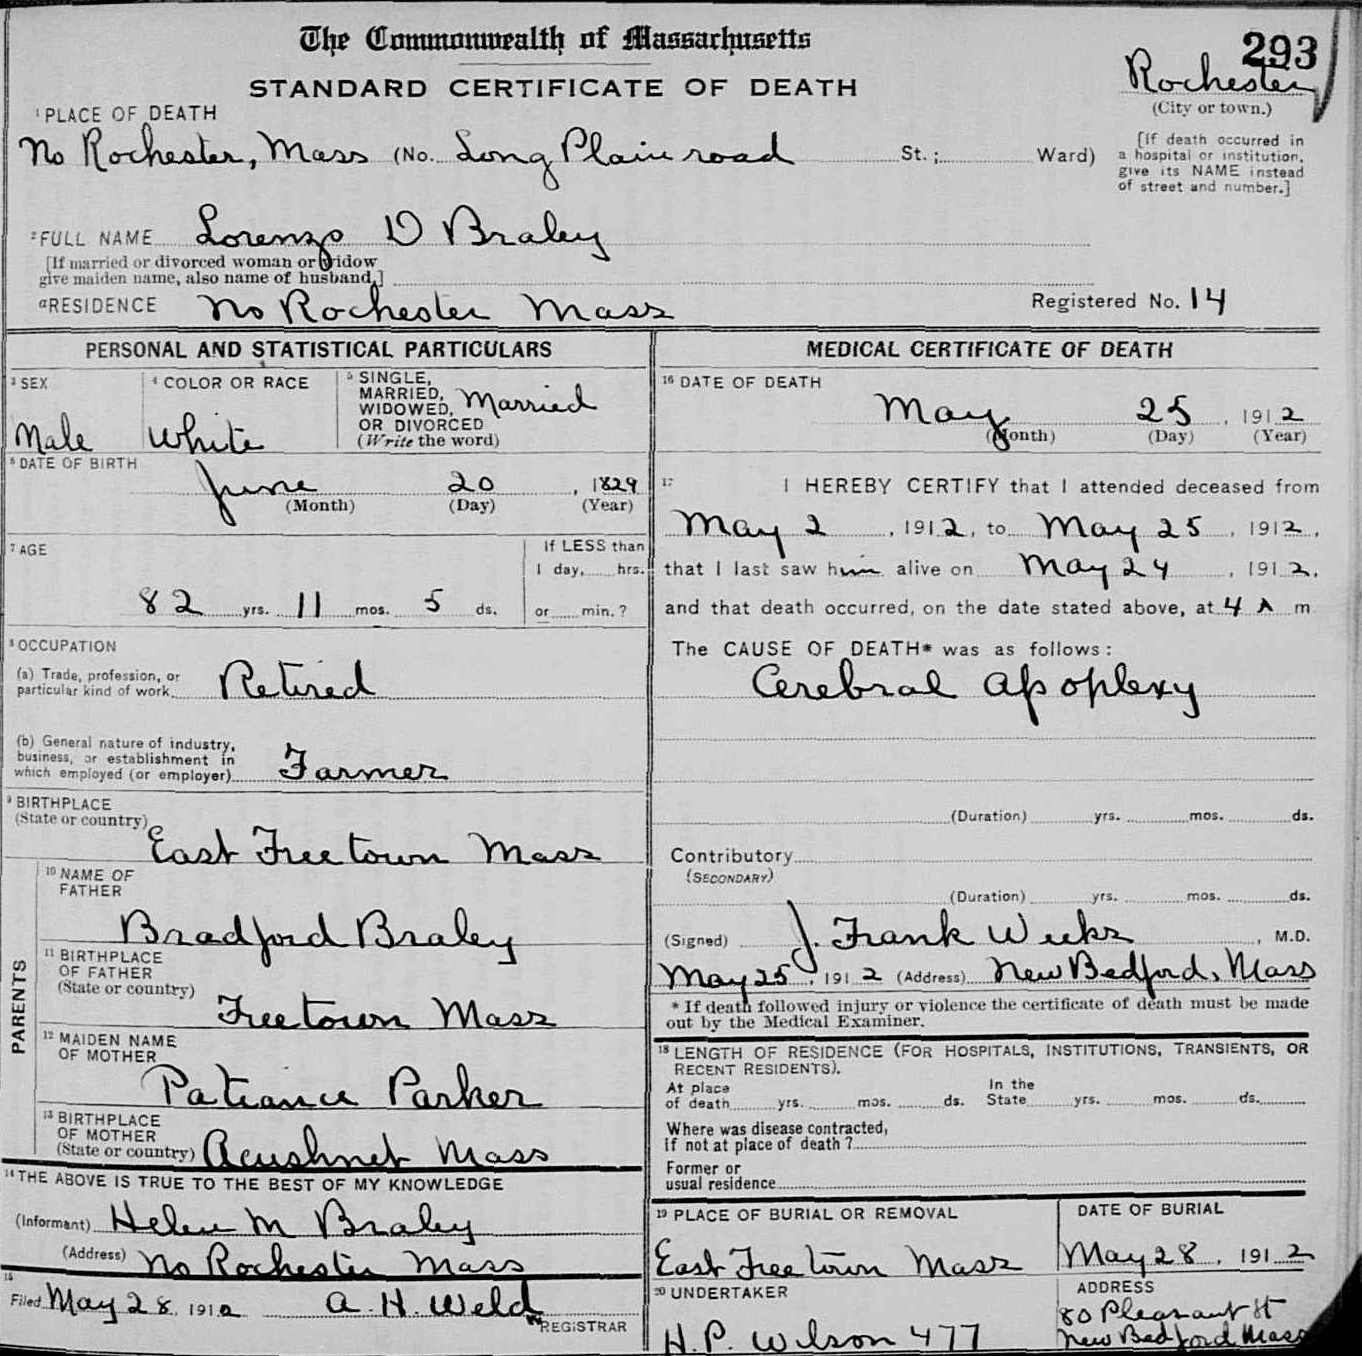 The Commonwealth of Massachusetts
293
STANDARD CERTIFICATE OF DEATH
Rochester
(City or town.)
1 PLACE OF DEATH
No Rochester, Mass (No. Long Plain road St.; Ward)
[If death occurred in
a hospital or institution,
give its NAME instead
of street and number.]
2 FULL NAME Lorenzo D Braley
[If married or divorced woman or widow
give maiden name, also name of husband.]
a RESIDENCE No Rochester Mass
Registered No. 14
PERSONAL AND STATISTICAL PARTICULARS
3 SEX
Male
4 COLOR OR RACE
White
5 SINGLE,
MARRIED,
WIDOWED,
OR DIVORCED
(Write the word)
Married
6 DATE OF BIRTH
June 20, 1829
(Month) (Day) (Year)
7 AGE
82 yrs. 11 mos. 5 ds.
If LESS than
1 day, hrs.
or min.?
8 OCCUPATION
(a) Trade, profession, or
particular kind of work Retired
(b) General nature of industry,
business, or establishment in
which employed (or employer) Farmer
9 BIRTHPLACE
(State or country)
East Freetown Mass
PARENTS
10 NAME OF
FATHER
Bradford Braley
11 BIRTHPLACE
OF FATHER
(State or country)
Freetown Mass
12 MAIDEN NAME
OF MOTHER
Patiance Parker
13 BIRTHPLACE
OF MOTHER
(State or country) Acushnet Mass
14 THE ABOVE IS TRUE TO THE BEST OF MY KNOWLEDGE
(Informant) Helen M Braley
(Address) No Rochester Mass
15
Filed May 28, 1912 A. H. Weld
REGISTRAR
MEDICAL CERTIFICATE OF DEATH
16 DATE OF DEATH
May 25, 1912
(Month) (Day) (Year)
17 I HEREBY CERTIFY that I attended deceased from
May 2, 1912, to May 25, 1912,
that I last saw him alive on May 24, 1912,
and that death occurred, on the date stated above, at 4 A m
The CAUSE OF DEATH* was as follows:
Cerebral Apoplexy
(Duration) yrs. mos. ds.
Contributory
(SECONDARY)
(Duration) yrs. mos. ds.
(Signed) J. Frank Weeks, M.D.
May 25, 1912 (Address) New Bedford, Mass
* If death followed injury or violence the certificate of death must be made
out by the Medical Examiner.
18 LENGTH OF RESIDENCE (FOR HOSPITALS, INSTITUTIONS, TRANSIENTS, OR
RECENT RESIDENTS).
At place
of death yrs. mos. ds.
In the
State yrs. mos. ds.
Where was disease contracted,
if not at place of death?
Former or
usual residence
19 PLACE OF BURIAL OR REMOVAL
East Freetown Mass
DATE OF BURIAL
May 28, 1912
20 UNDERTAKER
H. P. Wilson 477
ADDRESS
80 Pleasant St
New Bedford Mass